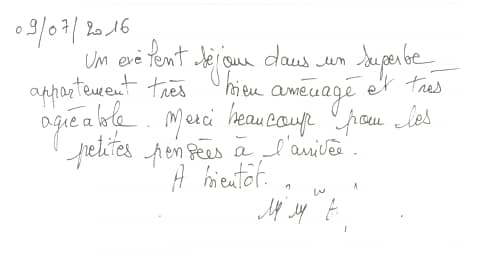 09/07/2016
Un exélent séjour dans un superbe
appartement très bien aménagé et très
agréable. Merci beaucoup pour les
petites pensées à l'arrivée.
A bientôt.